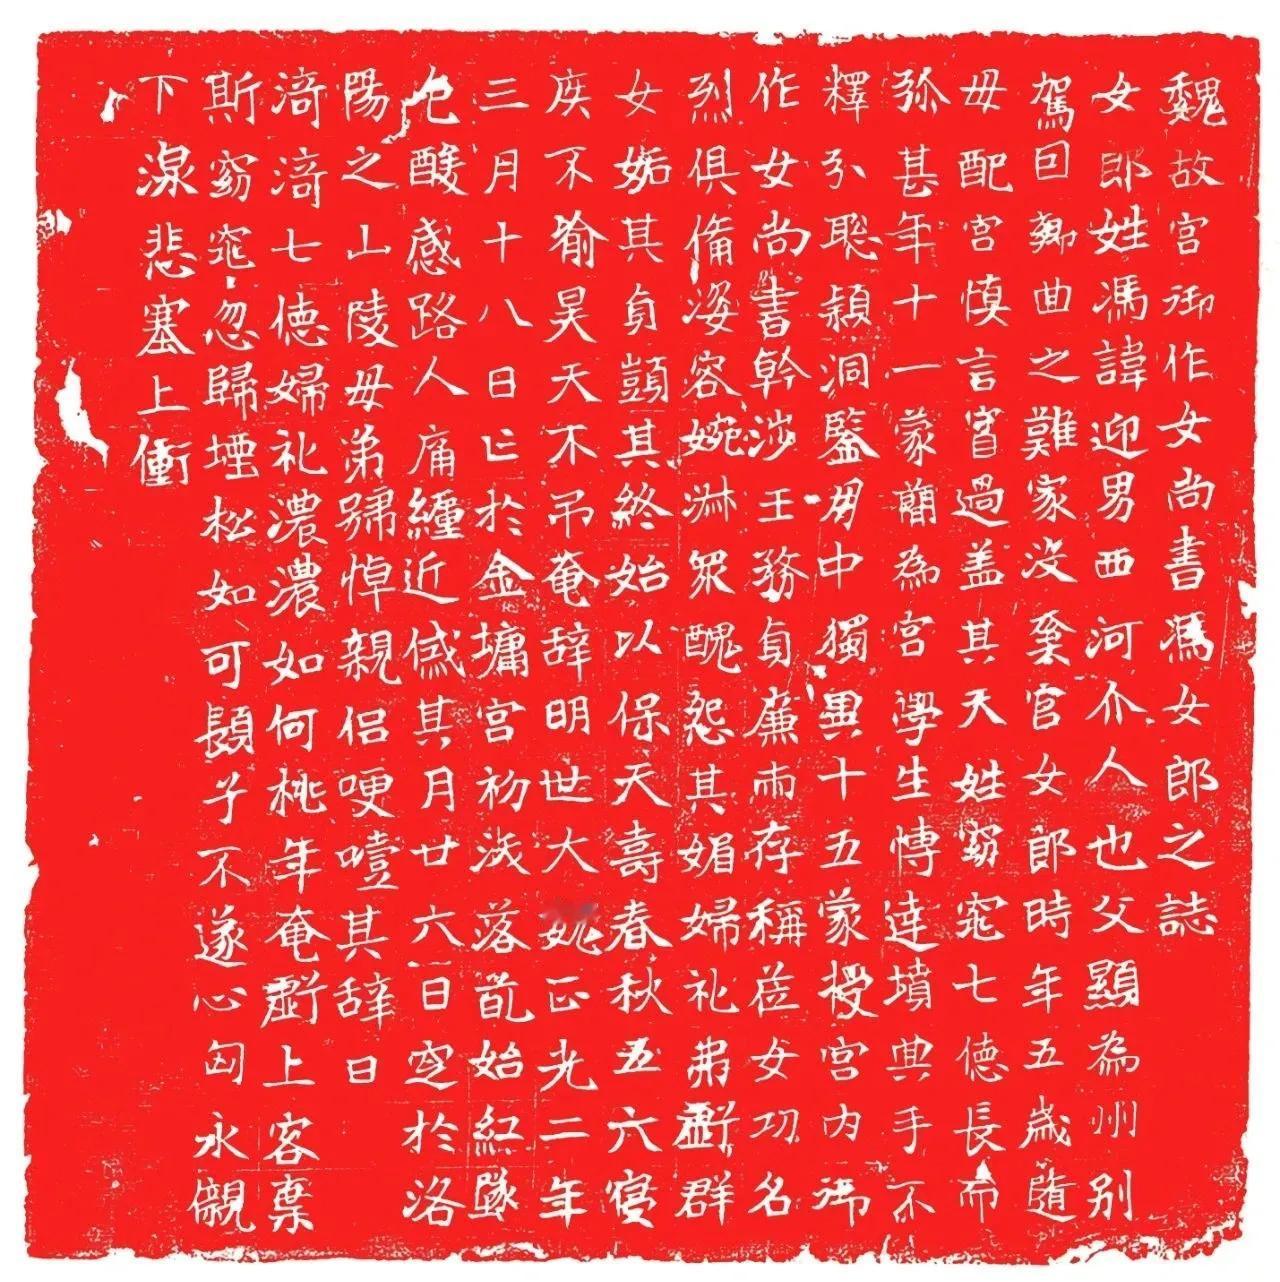 魏故宮御作女尚書馮女郎之誌
女郎姓馮諱迎男西河介人也父顯為州別
駕因鄉曲之難家沒奚官女郎時年五歲隨
母配宮慎言督過盖其天姓窈窕七德長而
弥甚年十一蒙蕳為宮學生博達墳典手不
釋聰穎洞鑒中獨異十五蒙授宮內御
作女尚書幹涉王務貞廉兩存稱莅女功名
烈俱備姿容婉淋眾醜怨其媚婦礼弗虧群
女姤其貞顗其終始以保天壽春秋五六寢
疾不喻昊天不弔奄辞明世大魏正光二年
三月十八日亡於金墉宮初落始紅墜
色酸感路人痛纏近慼其月廿六日窆於洛
陽之山陵母弟號悼親侶哽噎其辞曰
渏渏七德婦礼濃濃如何桃年奄虧上客棄
斯窈窕忽歸堙松如可願子不遂心永
下淥悲塞上衝